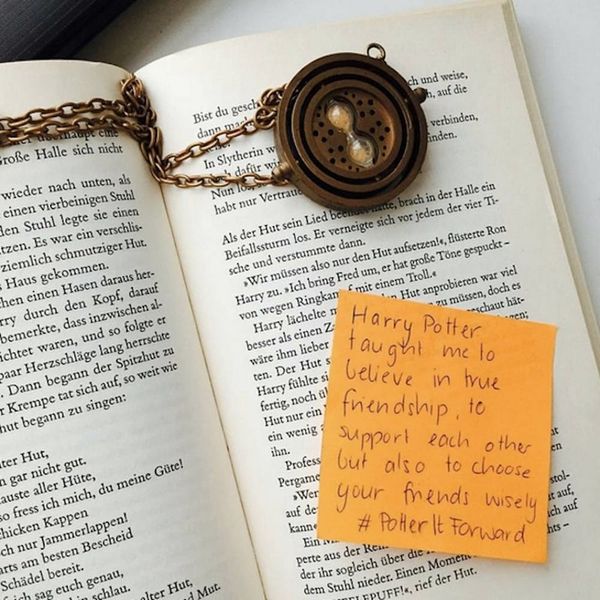 überhaupt eine
roße Halle sich nicht
wieder nach unten, als
einen vierbeinigen Stuhl
den Stuhl legte sie einen
tzen. Es war ein verschlis-
ziemlich schmutziger Hut.
Haus gekommen.
hen einen Hasen daraus her-
rry durch den Kopf, darauf
bemerkte, dass inzwischen al-
ichter waren, und so folgte er
paar Herzschläge lang herrschte
. Dann begann der Spitzhut zu
r Krempe tat sich auf, so weit wie
hut begann zu singen:
ter Hut,
n gar nicht gut.
auste aller Hüte,
so fress ich mich, du meine Güte!
chicken Kappen
ch nur Jammerlappen!
arts am besten Bescheid
Schädel bereit.
ich sag euch genau,
schlau.
Bist du gesch
dann mach
In Slytherin w
doch dafür wi
Nun los,
habt nur Vertraue
ch und weise,
, auf die
verbinden,
finden.
Als der Hut sein Lied beendet hatte, brach in der Halle ein
Beifallssturm los. Er verneigte sich vor jedem der vier Ti-
sche und verstummte dann.
»Wir müssen also nur den Hut aufsetzen!«, flüsterte Ron
Harry zu. »Ich bring Fred um, er hat große Töne gespuckt –
von wegen Ringkampf mit einem Troll.«
Harry lächelte m
Hut anprobieren war viel
besser als einen Z
zu müssen, doch es
wäre ihm lieber
schaut hät-
ten. Der Hut s
Harry fühlte si
fertig, noch ü
Hut nur ein
ein wenig
ihn.
Profess
Pergame
»Wen
auf
kanne
Ein
perte aus der Rei
der ihr sogleich über die
dem Stuhl nieder. Einen Moment
ELEPUFF!«, rief der Hut.
Harry Potter
taught me to
believe in true
friendship, to
support each other
but also to choose
your friends wisely
# PotterItForward